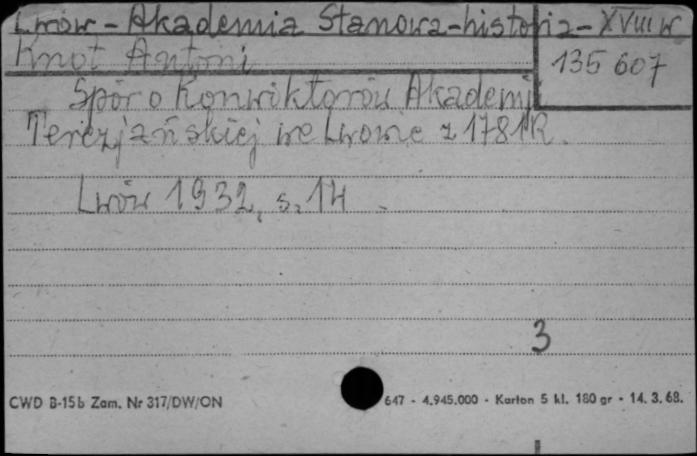 Lwów - Akademia Stanowa - historia - XVIII w
Knot Antoni
135 607
Spór o Konwiktorów Akademji
Terezjańskiej we Lwowie z 1781 R.
Lwów 1932, s. 14
3
CWD B-15b Zam. Nr 317/DW/ON 647 - 4.945.000 - Karton 5 kl. 180 gr - 14. 3. 68.